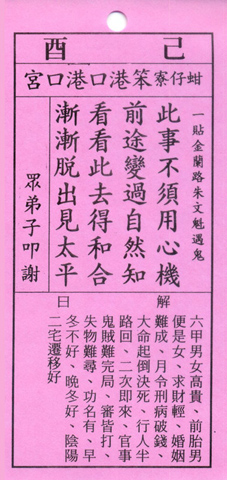 己酉
蚶仔寮笨港口港口宮
一貼金蘭路朱文魁遇鬼
此事不須用心機
前途變過自然知
看看此去得和合
漸漸脫出見太平
眾弟子叩謝
解曰
六甲男女高貴、前胎男
便是女、求財輕、婚姻
難成、月令刑病破錢、
大命起倒決死、行人半
路回、二次即來、官事
鬼賊難完局、審皆打、
失物難尋、功名有、早
冬不好、晚冬好、陰陽
二宅遷移好